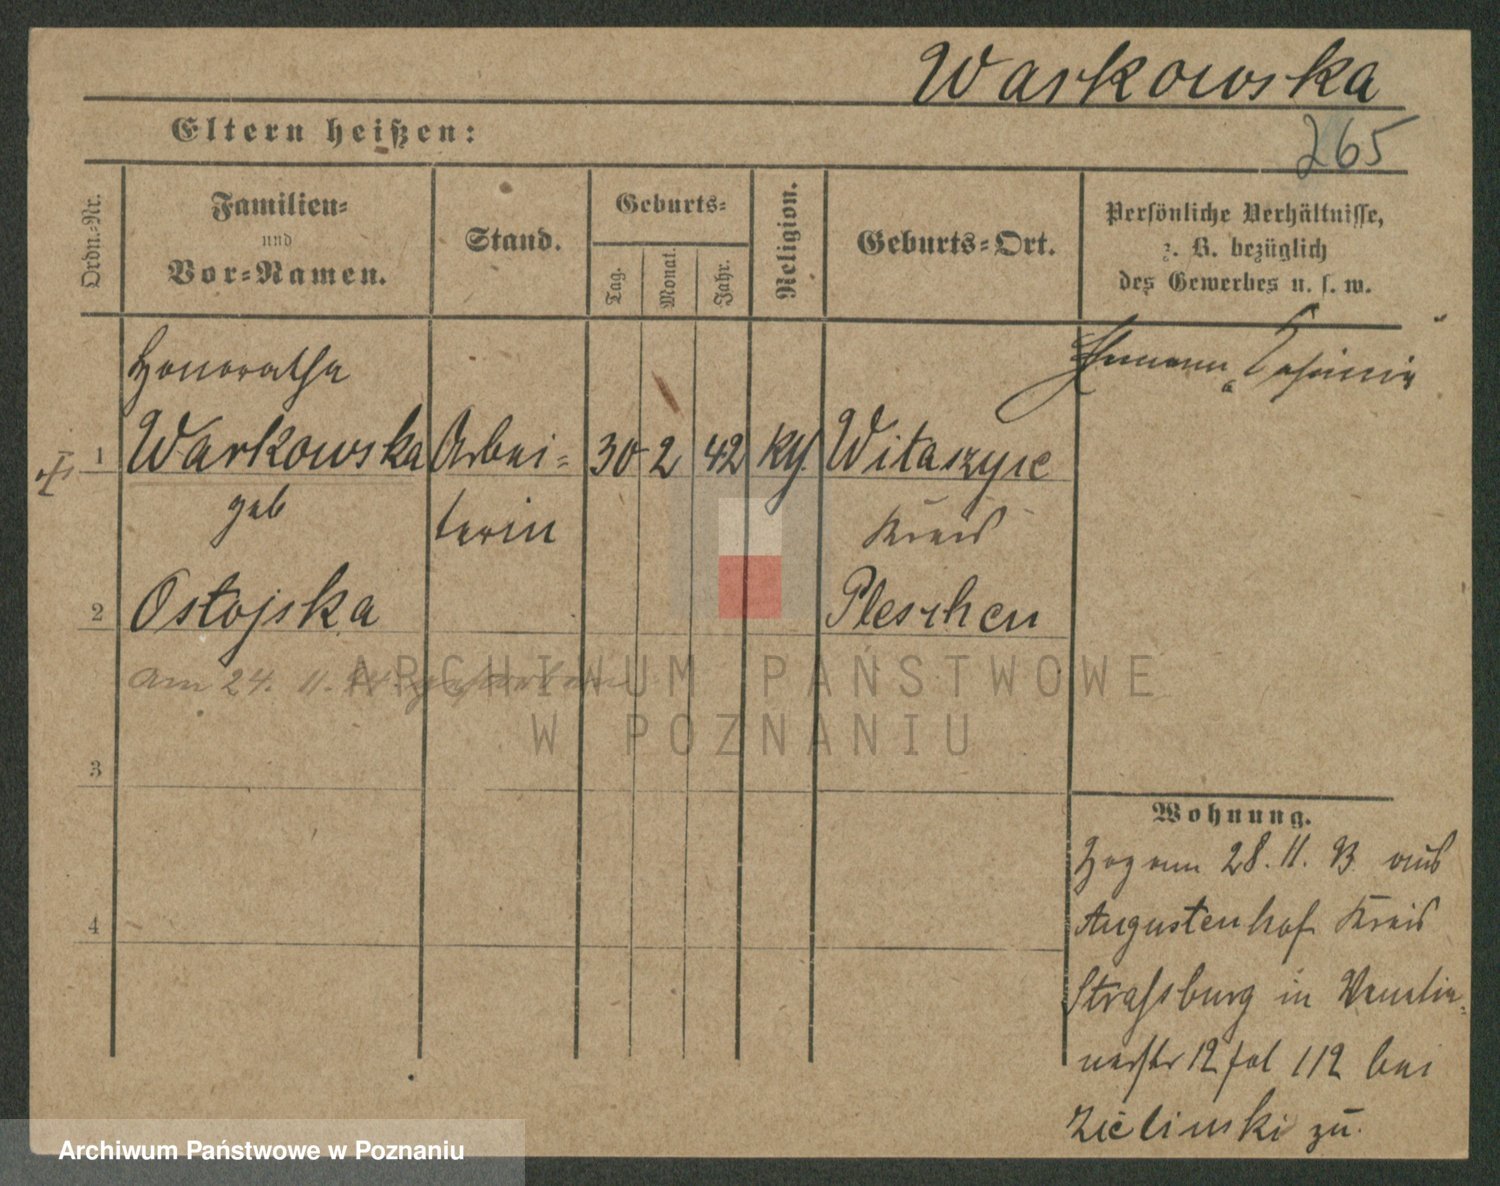 Warkowska
265
Eltern heißen:
Ordn.-Nr.
Familien-
und
Vor-Namen.
Stand.
Geburts-
Tag.
Monat.
Jahr.
Religion.
Geburts-Ort.
Persönliche Verhältnisse,
z. B. bezüglich
des Gewerbes u. s. w.
Honoratha
Ehemann
1 Warkowska Arbei- 30 2 42 kth. Witaszyce
geb terin Kreis
2 Ostojska Pleschen
am 24. 11. 94 gestorben
3
4
Wohnung.
Zog am 28. 11. 93 aus
Augustenhof Kreis
Strassburg in
12 fol 112 bei
Zielinski zu.
ARCHIWUM PAŃSTWOWE
W POZNANIU
Archiwum Państwowe w Poznaniu